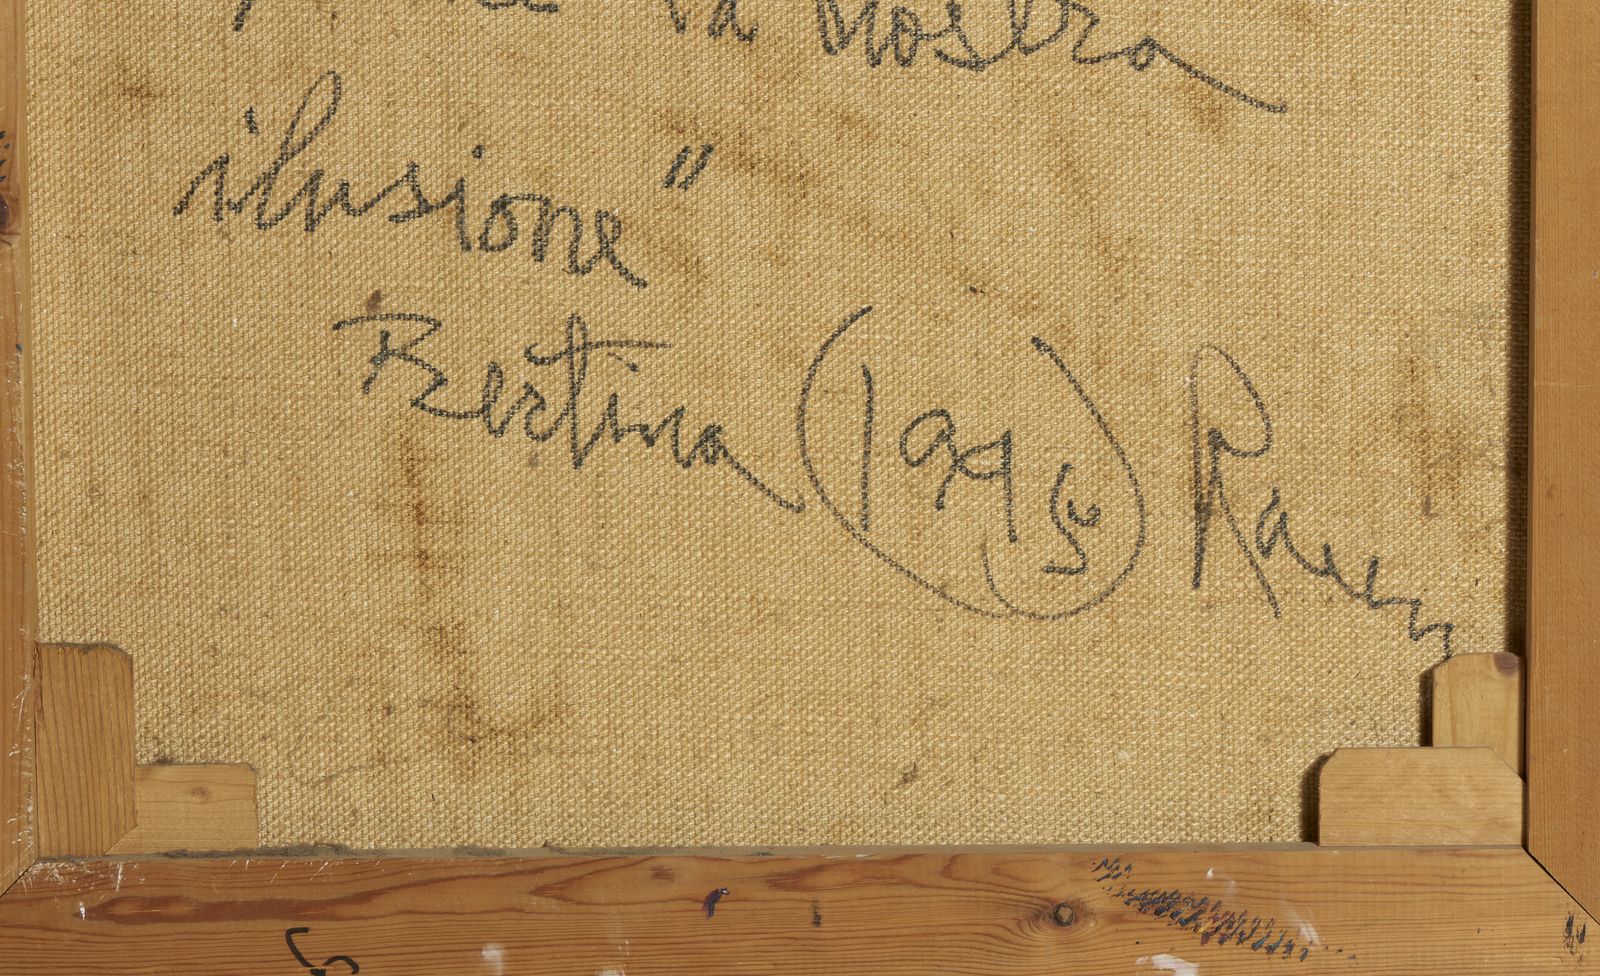 la nostra
ilusione"
Bertina (1995) Raum